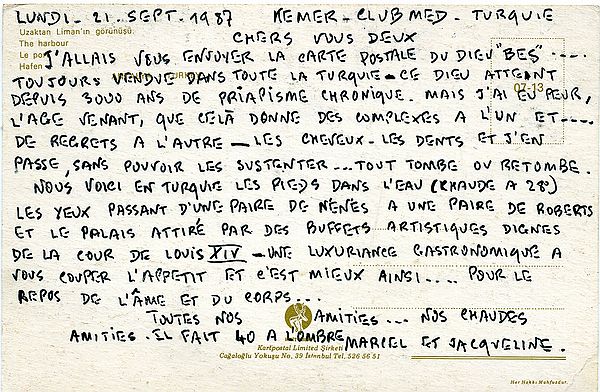 LUNDI - 21 . SEPT . 1987 KEMER - CLUB MED - TURQUIE
Uzaktan Liman'ın görünüşü.
The harbour
Le po
Hafen
CHERS VOUS DEUX
J'ALLAIS VOUS ENVOYER LA CARTE POSTALE DU DIEU "BES" ....
TOUJOURS VENDUE DANS TOUTE LA TURQUIE - CE DIEU ATTEINT
07-13
DEPUIS 3000 ANS DE PRIAPISME CHRONIQUE. MAIS J'AI EU PEUR,
L'AGE VENANT, QUE CELÀ DONNE DES COMPLEXES A L'UN ET ....
DE REGRETS A L'AUTRE - LES CHEVEUX - LES DENTS ET J'EN
PASSE, SANS POUVOIR LES SUSTENTER ... TOUT TOMBE OU RETOMBE.
NOUS VOICI EN TURQUIE LES PIEDS DANS L'EAU (CHAUDE A 28°)
LES YEUX PASSANT D'UNE PAIRE DE NENES A UNE PAIRE DE ROBERTS
ET LE PALAIS ATTIRÉ PAR DES BUFFETS ARTISTIQUES DIGNES
DE LA COUR DE LOUIS XIV - UNE LUXURIANCE GASTRONOMIQUE A
VOUS COUPER L'APPETIT ET C'EST MIEUX AINSI .... POUR LE
REPOS DE L'ÂME ET DU CORPS ...
TOUTES NOS AMITIES ... NOS CHAUDES
AMITIES . IL FAIT 40 A L'OMBRE MARCEL ET JACQUELINE .
Kartpostal Limited Şirketi
Cağaloğlu Yokuşu No, 39 İstanbul Tel. 526 56 51
Her Hakkı Mahfuzdur.